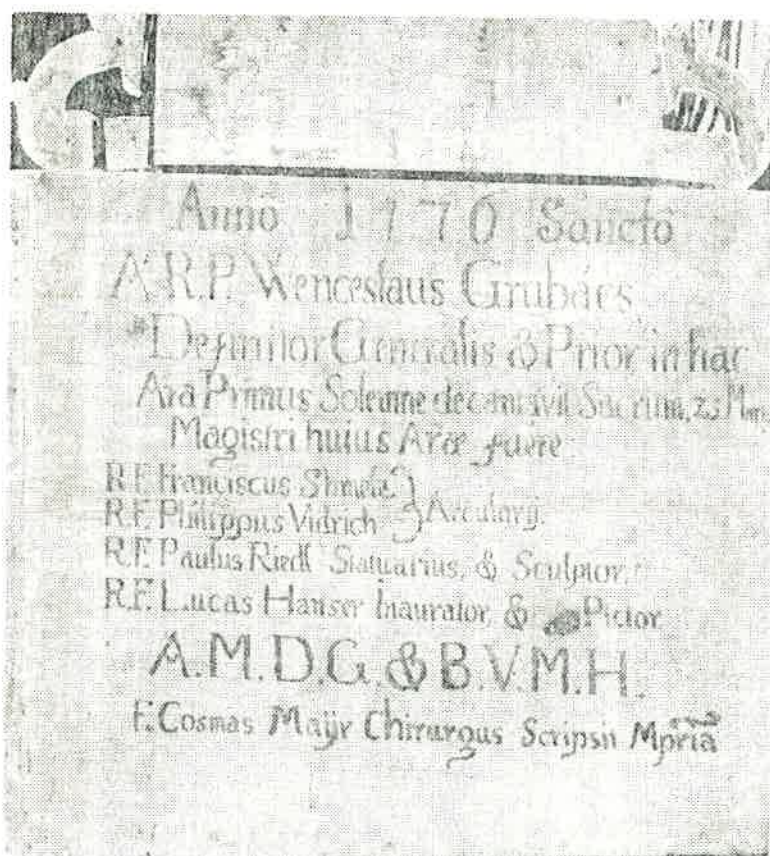 Anno 1770 Sancto
A.R.P. Wenceslaus Grubács
Definitor Generalis & Prior in hac
Ara Primus Solemne decantavit Sacrum,
Magistri huius Aræ fuere
R.F. Franciscus
R.F. Philippus Vidrich Arcularij.
R.F. Paulus Riedl Statuarius, & Sculptor.
R.F. Lucas Hanser Inaurator, & Pictor
A.M.D.G. & B.V.M.H.
F. Cosmas Maÿr Chirurgus Scripsit Mpria